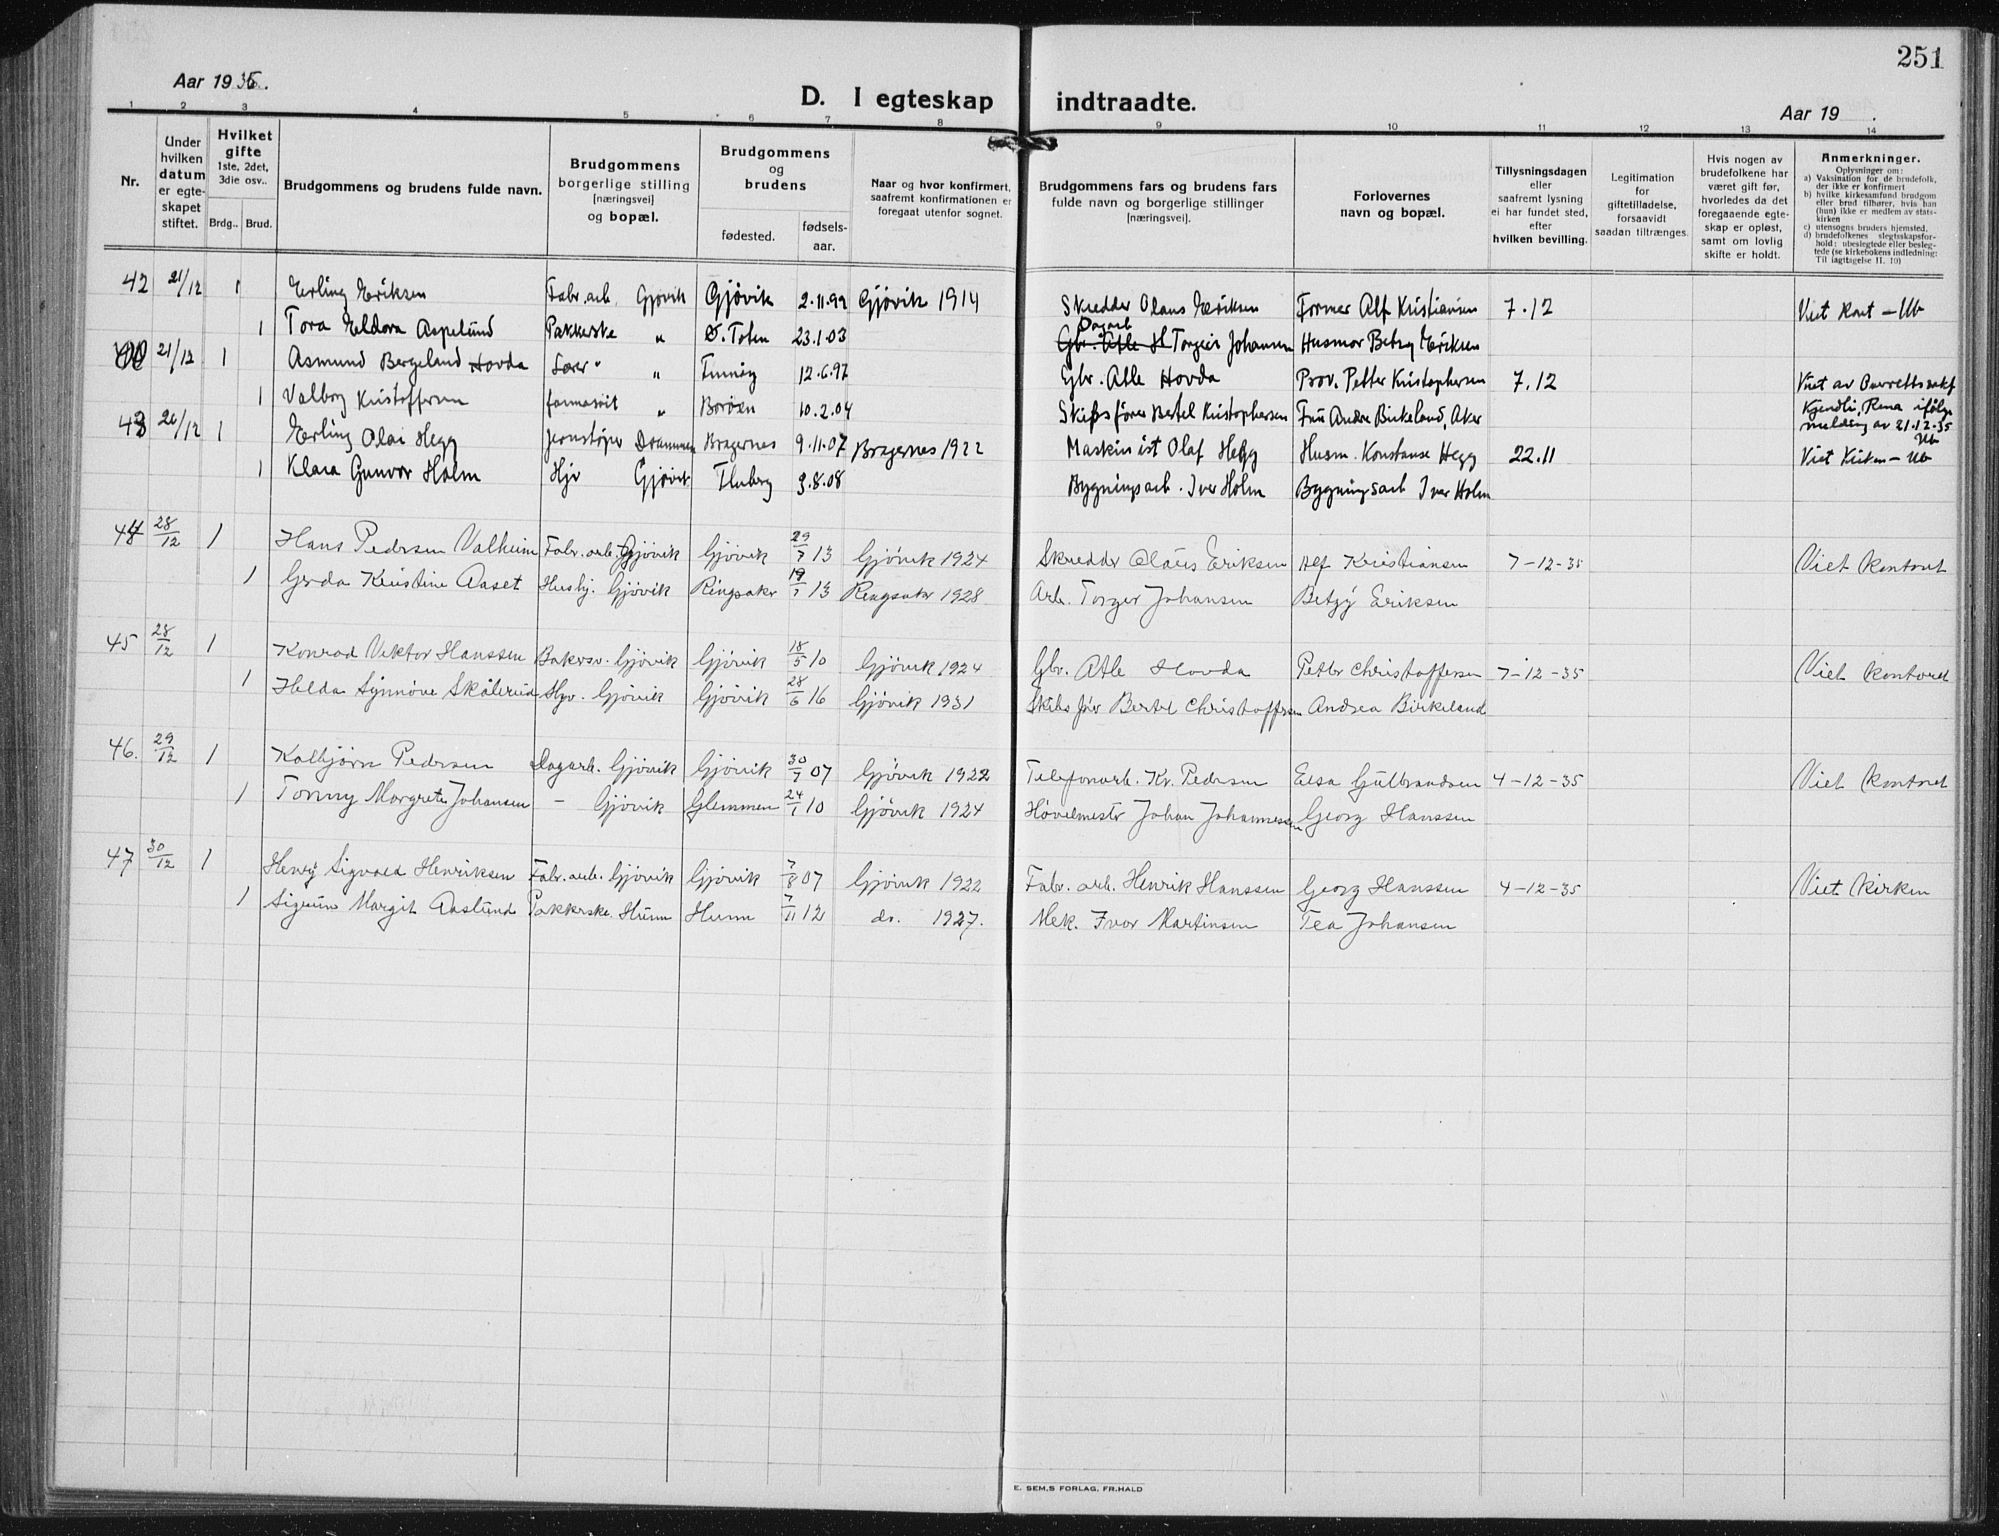 251
Aar 1935.
D. I egteskap indtraadte.
Aar 19 .
1 2 3 4 5 6 7 8 9 10 11 12 13 14
Nr.
Under hvilken datum er egteskapet stiftet.
Hvilket gifte 1ste, 2det, 3die osv..
Brdg.. Brud.
Brudgommens og brudens fulde navn.
Brudgommens borgerlige stilling [næringsvei] og bopæl.
Brudgommens og brudens
fødested.
fødsels-aar.
Naar og hvor konfirmert, saafremt konfirmationen er foregaat utenfor sognet.
Brudgommens fars og brudens fars fulde navn og borgerlige stillinger [næringsvei].
Forlovernes navn og bopæl.
Tillysningsdagen eller saafremt lysning ei har fundet sted, efter hvilken bevilling.
Legitimation for giftetilladelse, forsaavidt saadan tiltrænges.
Hvis nogen av brudefolkene har været gift før, hvorledes da det foregaaende egteskap er opløst, samt om lovlig skifte er holdt.
Anmerkninger.
Oplysninger om:
a) Vaksination for de brudefolk, der ikke er konfirmert
b) hvilke kirkesamfund brudgom eller brud tilhører, hvis han (hun) ikke er medlem av statskirken
c) utensogns bruders hjemsted,
d) brudefolkenes slegtsskapsforhold: ubeslegtede eller beslegtede (se kirkebokens indledning: Til iagttagelse II. 10)
42 21/12 1 Erling Eriksen Fabr. arb. Gjøvik Gjøvik 2.11.99 Gjøvik 1914 Skredder Olaus Eriksen Former Alf Kristiansen 7.12 Viet Kont - Ub
1 Tora Eldora Aspelund Pakkerske " Ø. Toten 23.1.03 Dagarb Torgeir Johansen Husmor Betzy Eriksen
21/12 1 Asmund Bergeland Hovda Lærer " " Finnøy 12.6.97 Gbr. Atle Hovda Prov. Petter Kristophersen 7.12 Viet av
1 Valborg Kristoffersen farmasöit " Borøen 10.2.04 Skibsfører Bertel Kristophersen Fru Andre Birkeland, Aker Kjendli, Rena ifølge melding av 21.12.35 Ub
43 26/12 1 Erling Olai Hegg Jernstøper Drammen Bragernes 9.11.07 Bragernes 1922 Maskinist Olaf Hegg Husm. Konstanse Hegg 22.11 Viet Kirken - Ub
1 Klara Gunvor Holm Hjv Gjøvik Fluberg 9.8.08 Bygningsarb. Iver Holm Bygningsarb Iver Holm
44 28/12 1 Hans Pedersen Valheim Fabr. arb. Gjøvik Gjøvik 29/7 13 Gjøvik 1924 Skredder Olaus Eriksen Alf Kristiansen 7-12-35 Viet kontoret
1 Gerda Kristine Aaset Husbj. Gjøvik Ringsaker 19/7 13 Ringsaker 1928 Arb. Torger Johansen Betzy Eriksen
45 28/12 1 Konrad Viktor Hanssen Bakersv. Gjøvik Gjøvik 18/5 10 Gjøvik 1924 Gbr. Atle Hovda Petter Christoffersen 7-12-35 Viet kontoret
1 Helda Synnøve Skålerud Hgv. Gjøvik Gjøvik 28/6 16 Gjøvik 1931 Skibsfør Bertel Christoffersen Andrea Birkeland
46. 29/12 1 Kolbjørn Pedersen Dagarb. Gjøvik Gjøvik 30/7 07 Gjøvik 1922 Telefonarb. Kr. Pedersen Elsa Gulbrandsen 4-12-35 Viet kontoret
1 Tonny Margrete Johansen - Gjøvik Glemmen 24/1 10 Gjøvik 1924 Høvelmester Johan Johannessen Georg Hanssen
47 30/12 1 Henry Sigvald Henriksen Fabr. arb. Gjøvik Gjøvik 7/8 07 Gjøvik 1922 Fabr. arb. Henrik Hanssen Georg Hanssen 4-12-35 Viet kirken
1 Sigrun Margit Aaslund Pakkerske. Hunn Hunn 7/11 12 do. 1927. Mek. Ivar Martinsen Tea Johansen
E. SEM,S FORLAG, FR.HALD